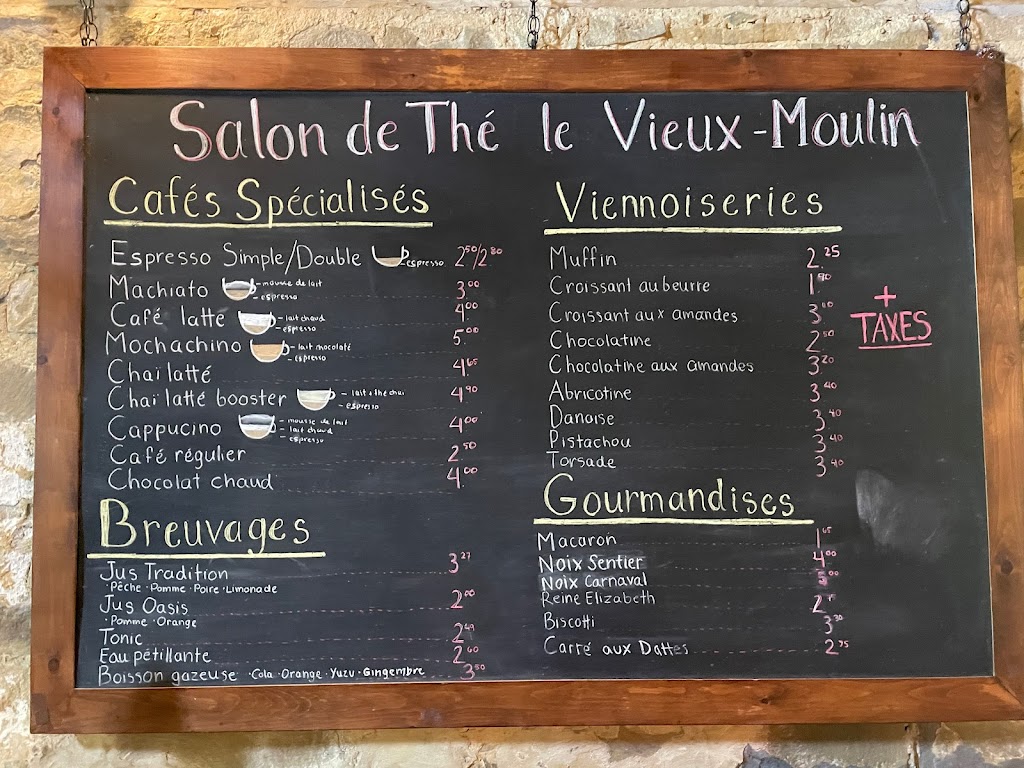 Salon de Thé le Vieux-Moulin
Cafés Spécialisés
Espresso Simple/Double espresso 2.50/2.80
Machiato - mousse de lait 3.00
- espresso
Café latte - lait chaud 4.00
- espresso
Mochachino - lait mocolaté 5.00
- espresso
Chaï latté 4.65
Chaï latté booster - lait & thé chaï 4.90
- espresso
Cappucino - mousse de lait 4.00
- lait chaud
- espresso
Café régulier 2.50
Chocolat chaud 4.00
Breuvages
Jus Tradition 3.27
·Pêche ·Pomme ·Poire ·Limonade
Jus Oasis 2.00
·Pomme ·Orange
Tonic 2.49
Eau pétillante 2.60
Boisson gazeuse ·Cola ·Orange ·Yuzu ·Gingembre 3.50
Viennoiseries
Muffin 2.25
Croissant au beurre 1.90
Croissant aux amandes
Chocolatine 2.50
Chocolatine aux amandes 3.20
Abricotine 3.40
Danoise 3.40
Pistachou 3.40
Torsade 3.40
+
TAXES
Gourmandises
Macaron 1.65
Noix Sentier 4.00
Noix Carnaval 5.00
Reine Elizabeth
Biscotti 3.30
Carré aux Dattes 2.75